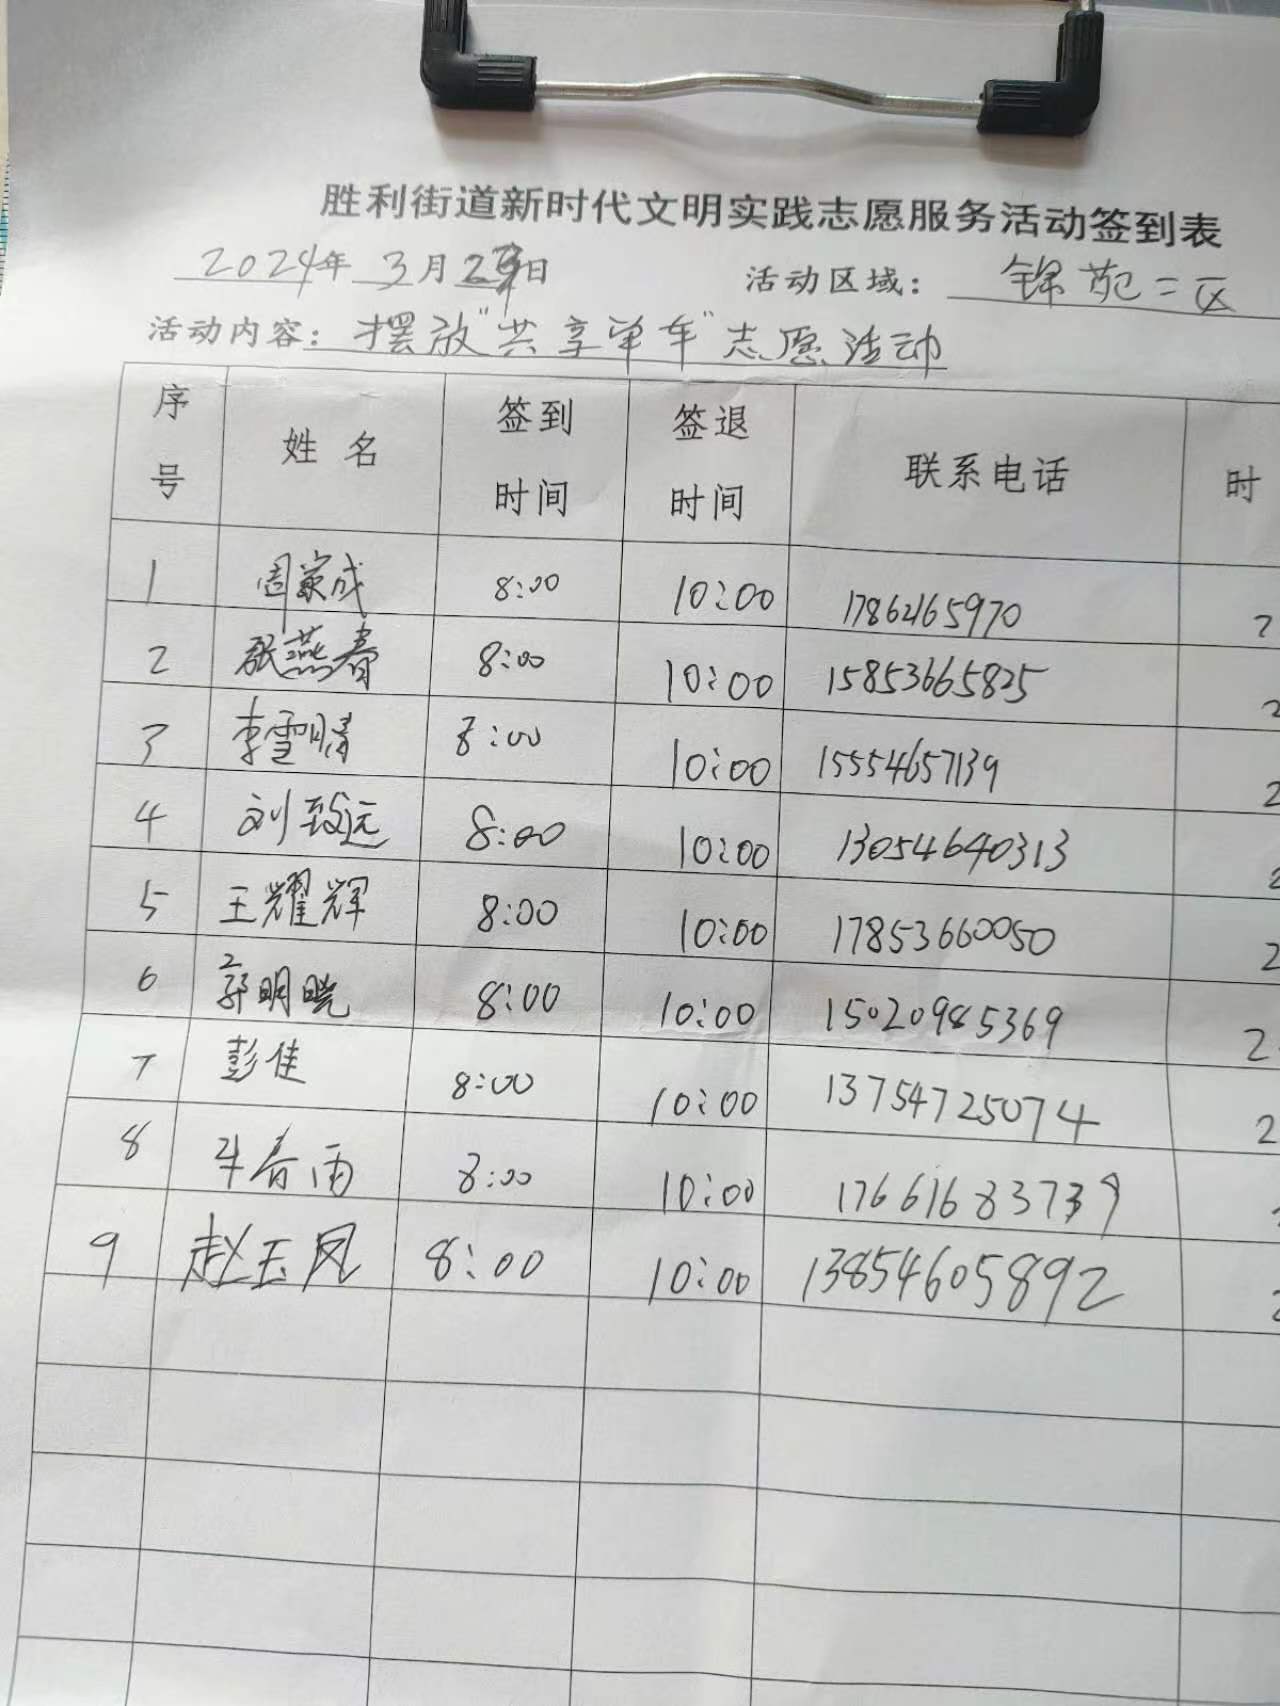 胜利街道新时代文明实践志愿服务活动签到表
2024年 3月 29日 活动区域: 锦苑二区
活动内容: 摆放"共享单车"志愿活动
序号 姓名 签到时间 签退时间 联系电话 时
1 周家成 8:00 10:00 17862165970 2
2 张燕春 8:00 10:00 15853665825 2
3 李雪晴 8:00 10:00 15554657139 2
4 刘致远 8:00 10:00 13054640313 2
5 王耀辉 8:00 10:00 17853660050 2
6 郭明晓 8:00 10:00 15020985369 2
7 彭佳 8:00 10:00 13754725074 2
8 春雨 8:00 10:00 17661683739
9 赵玉凤 8:00 10:00 13854605892 2